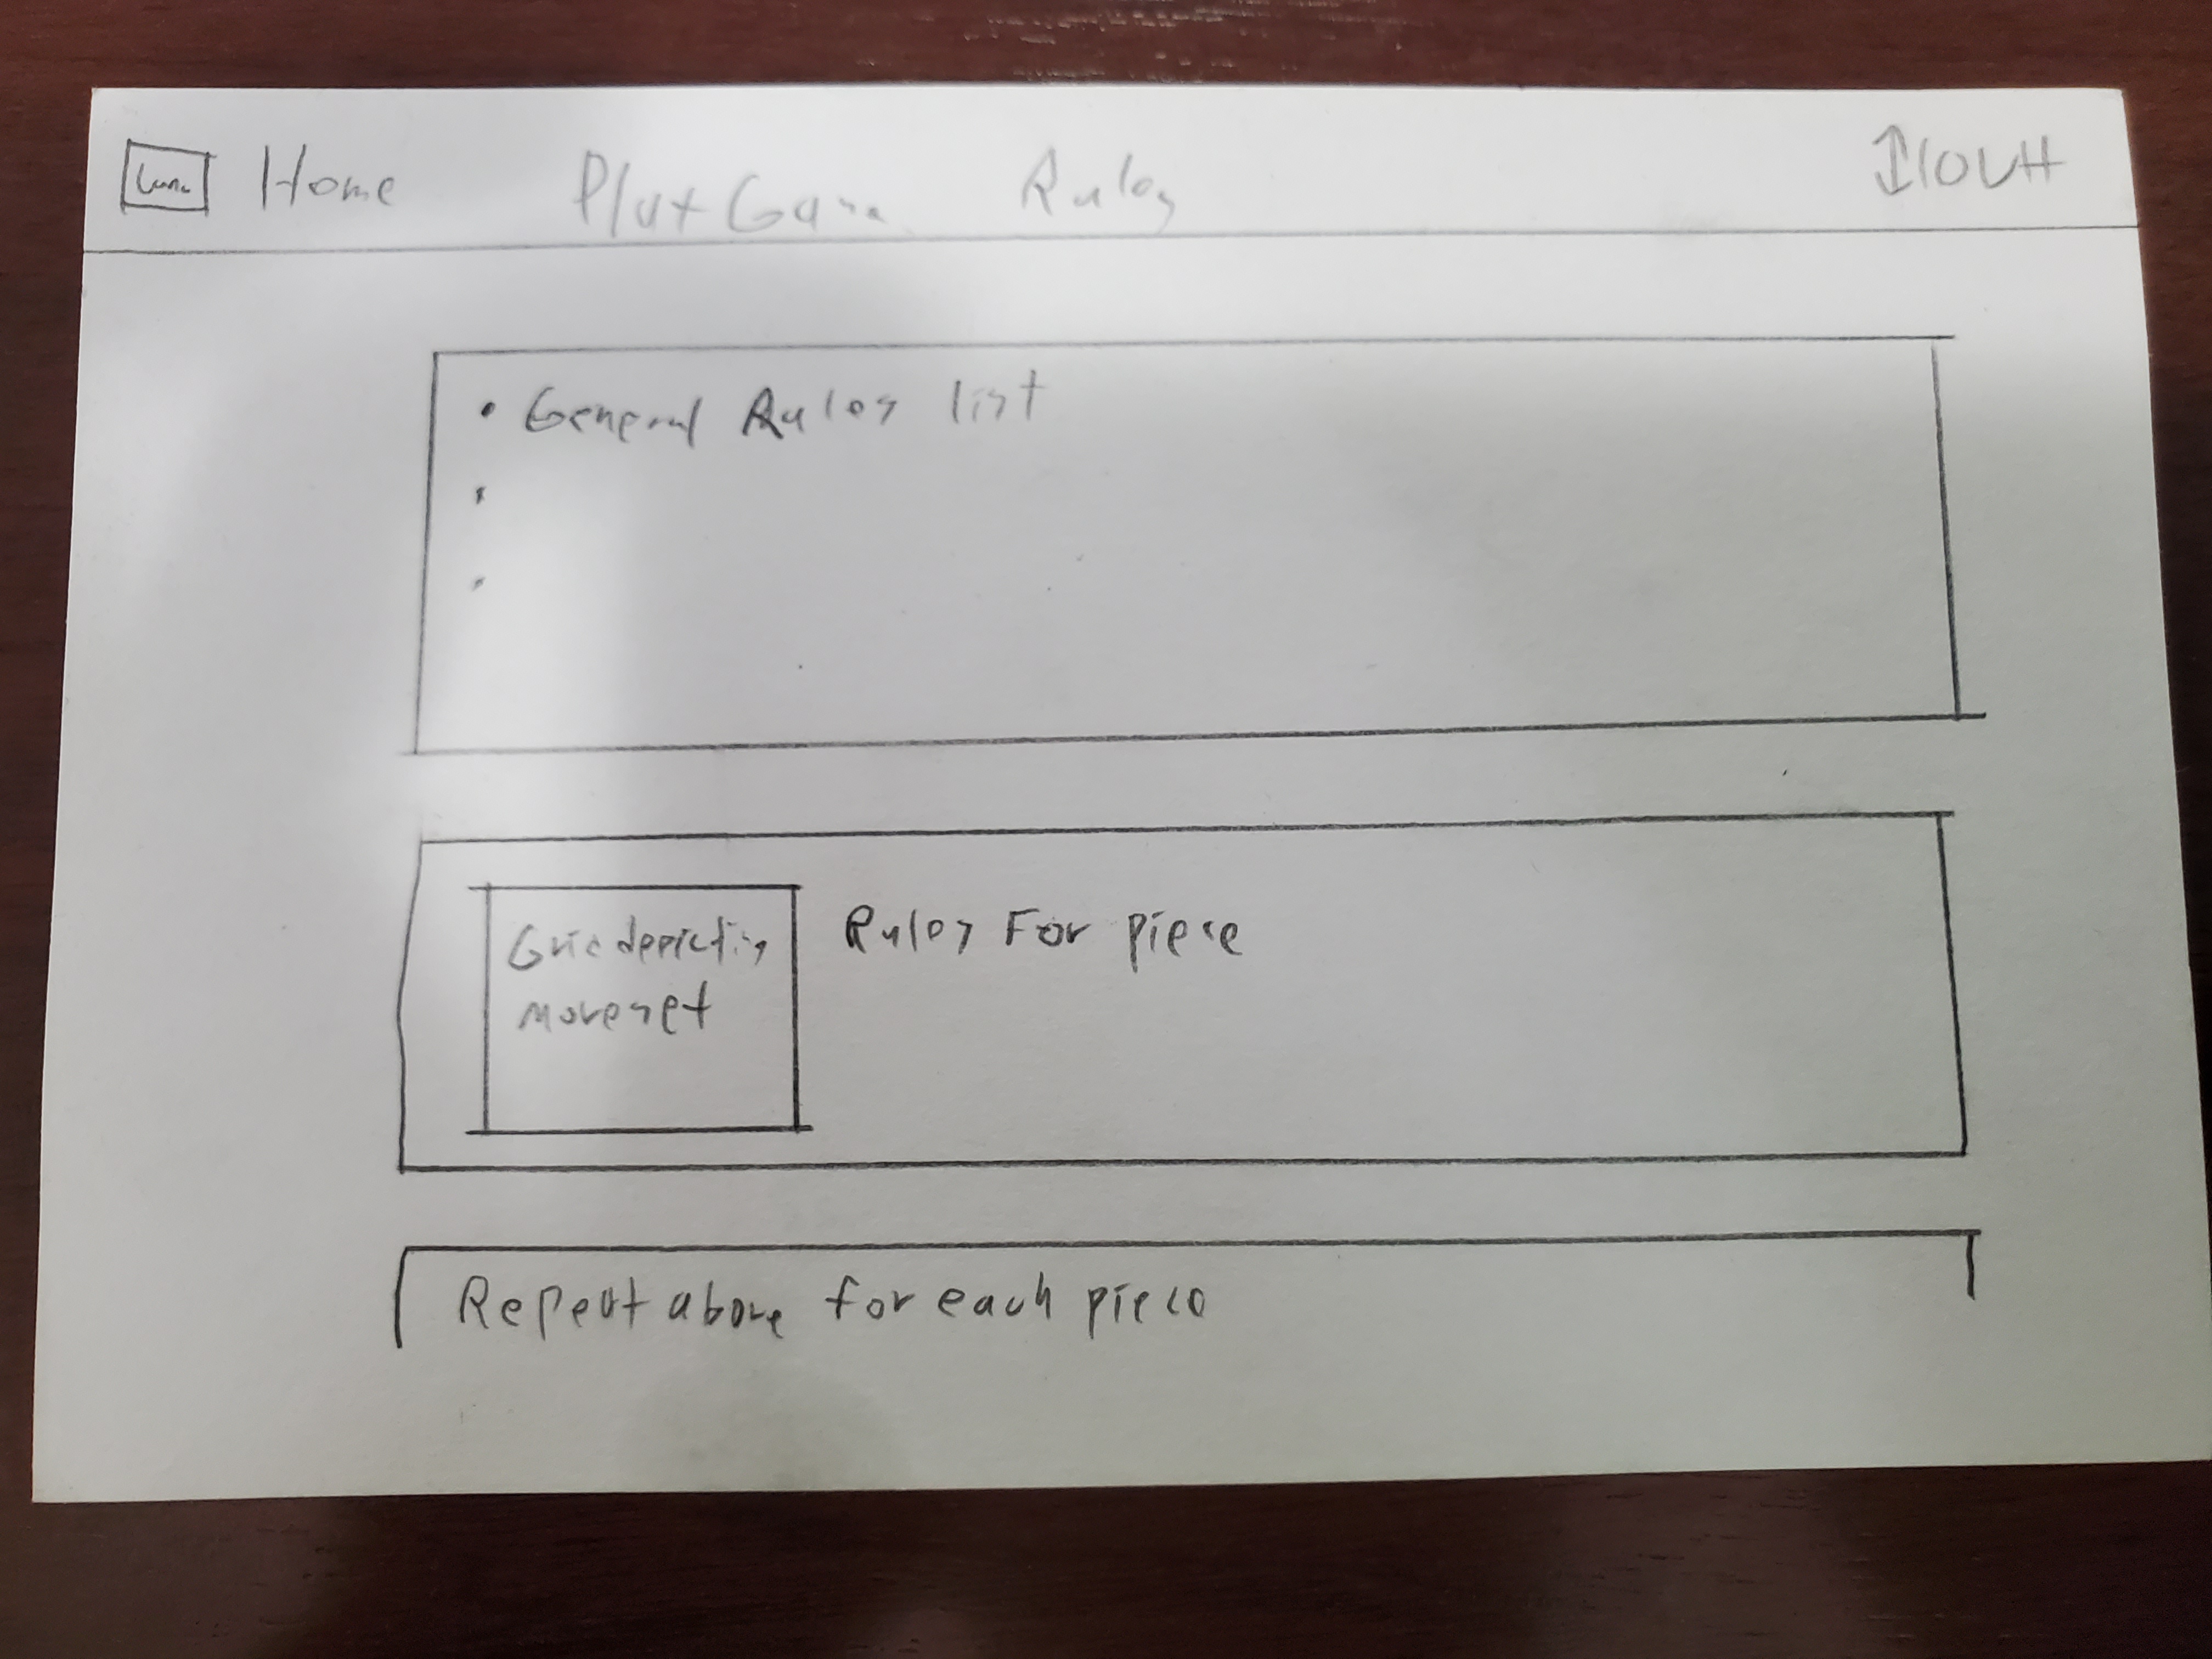 Home Play Game Rules
• General Rules list
•
•
Grid depicting
moveset
Rules For piece
Repeat above for each piece